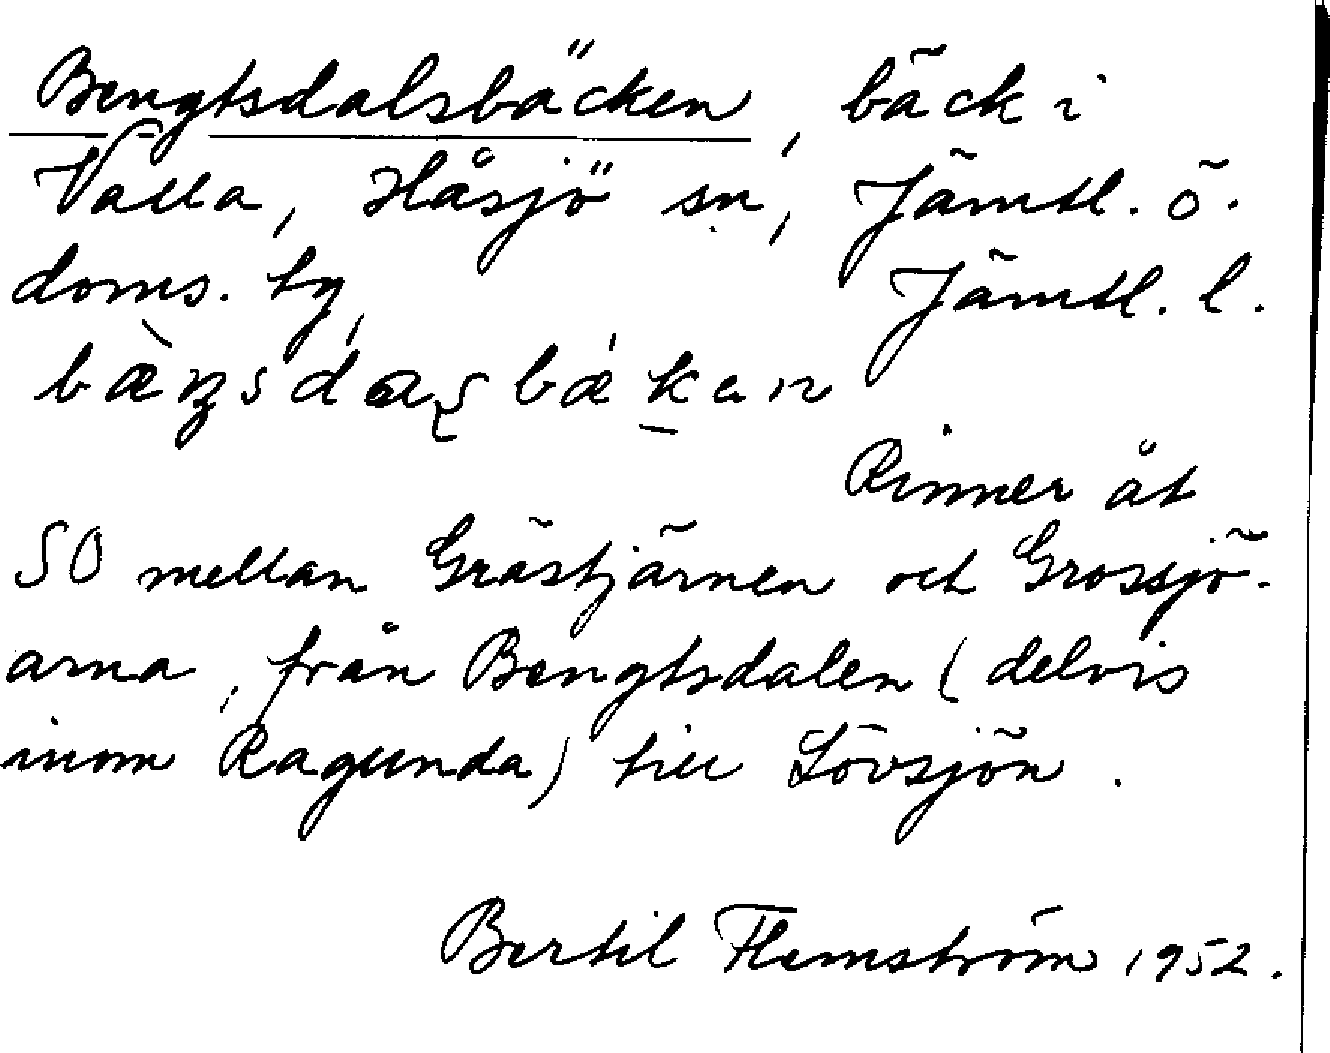 Bengtsdalsbäcken, bäck i
Valla, Håsjö sn, Jämtl. ö.
doms. hg, Jämtl. l.
Rinner åt
SO mellan Grästjärnen och Grossjö-
arna, från Bengtsdalen (delvis
inom Ragunda) till Lövsjön.
Bertil Flemström 1952.